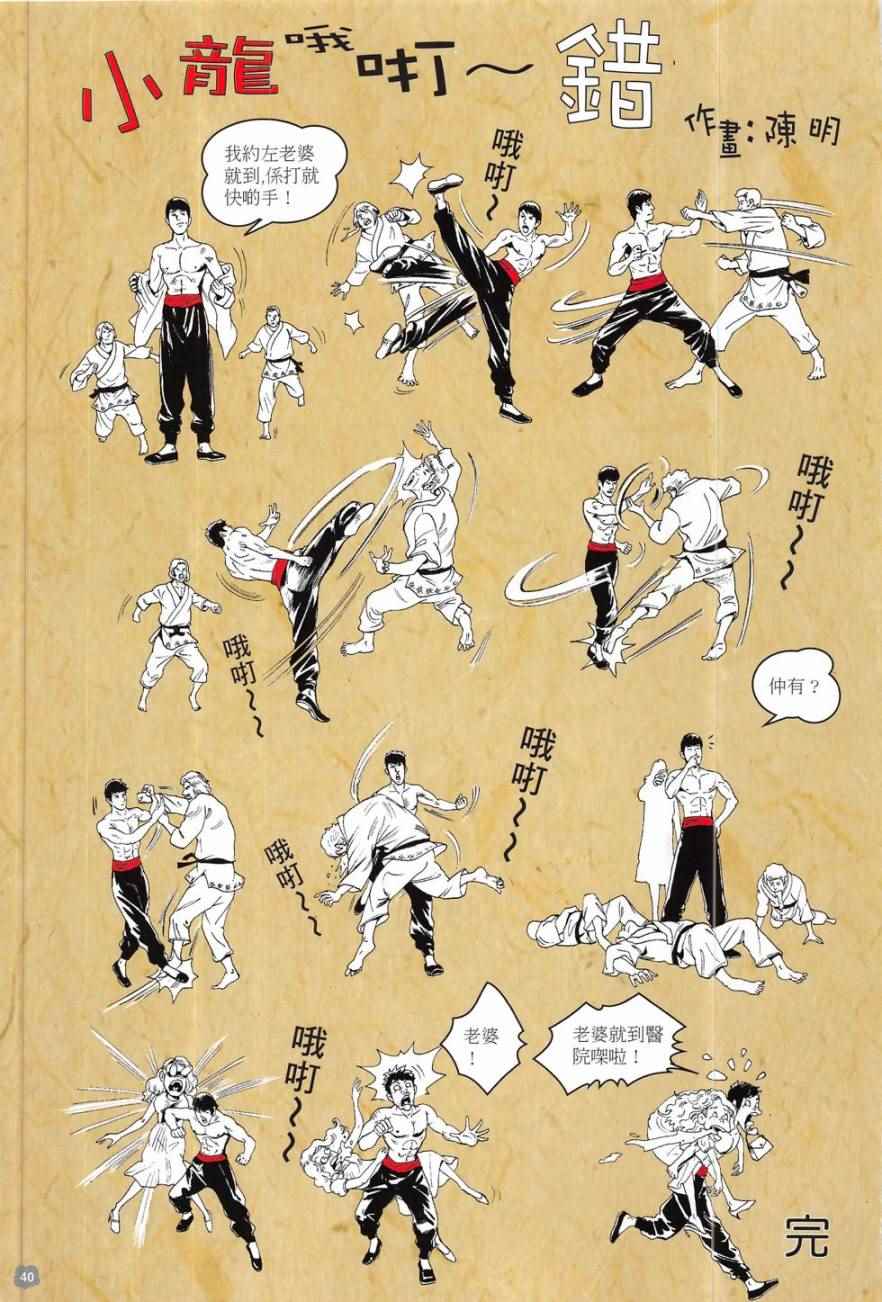 小龍哦㕷～錯
作畫：陳明
我約左老婆
就到,係打就
快啲手！
哦㕷～
哦㕷～～
哦㕷～～
仲有？
哦㕷～～
哦㕷～～
哦㕷～～
老婆
！
老婆就到醫
院㗎啦！
完
40